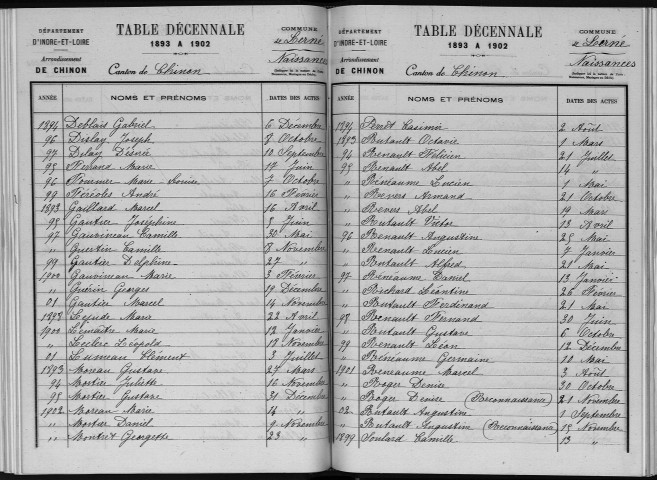 DÉPARTEMENT
D'INDRE-ET-LOIRE
Arrondissement
DE CHINON
TABLE DÉCENNALE
1893 A 1902
Canton de Chinon
COMMUNE
de Lerné
Naissances
ANNÉE NOMS ET PRÉNOMS DATES DES ACTES
1894 Deblais Gabriel 6 Décembre
96 Dislay Joseph 8 Octobre
97 Delay Désirée 10 Septembre
95 Ferrand Marie 17 Juin
96 Fournier Marie Louise 7 Octobre
99 Féréoles André 16 Février
1893 Gaillard Marcel 16 Avril
95 Gautier Joséphine 3 Juin
97 Gauvineau Camille 30 Mai
" Guertin Camille 8 Novembre
99 Gautier Delphine 27 "
1900 Gauvineau Marie 3 Février
" Guérin Georges 19 Décembre
01 Gautier Marcel 14 Novembre
1893 Marie 22 Avril
1900 Lemaître Marie 12 Janvier
" Leclerc Léopold 18 Novembre
01 Lumeau Clément 3 Juillet
1893 Moreau Gustave 27 Mars
94 Mortier Juliette 16 Novembre
95 Mortier Gustave 31 Décembre
1902 Moreau Marie 14 "
" Mortier Daniel 9 Novembre
" Montret Georgette 23 "
DÉPARTEMENT
D'INDRE-ET-LOIRE
Arrondissement
DE CHINON
TABLE DÉCENNALE
1893 A 1902
Canton de Chinon
COMMUNE
de Lerné
Naissances
ANNÉE NOMS ET PRÉNOMS DATES DES ACTES
1894 Perret Casimir 2 Août
1893 Rutault Octavie 1 Mars
94 Renault Félicien 21 Juillet
95 Renault Abel 14 "
" Rénéaume Lucien 1 Mai
" Armand 21 Octobre
" Abel 19 Mars
" Rutault Victor 13 Avril
96 Renault Augustine 25 Mai
" Renault Lucien 7 Janvier
" Rutault Alfred 21 Mai
97 Rénéaume Daniel 13 Janvier
" Richard Léontine 26 Février
" Rutault Ferdinand 21 Mai
98 Renault Fernand 30 Juin
" Rutault Gustave 6 Octobre
99 Renault Léon 12 Décembre
" Rénéaume Germaine 10 Mai
1901 Rénéaume Marcel 3 Août
" Roger Denise 30 Octobre
" Roger Denise (Reconnaissance) 21 Novembre
02 Rutault Augustine 1 Septembre
" Rutault Augustine (Reconnaissance) 15 Novembre
1899 Soulard Camille 13 "